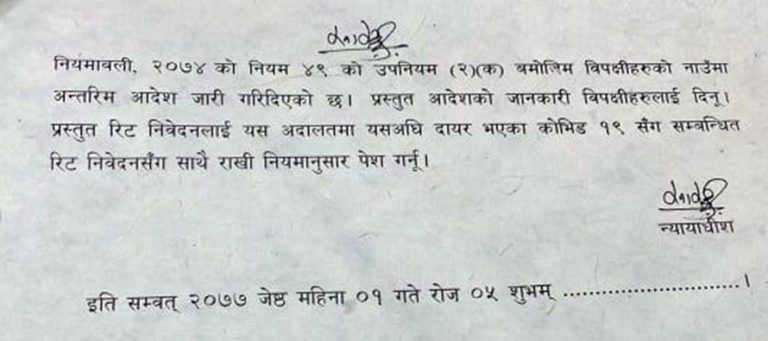 नियमावली, २०७४ को नियम ४९ को उपनियम (२)(क) बमोजिम विपक्षीहरुको नाउँमा
अन्तरिम आदेश जारी गरिदिएको छ। प्रस्तुत आदेशको जानकारी विपक्षीहरुलाई दिनू।
प्रस्तुत रिट निवेदनलाई यस अदालतमा यसअघि दायर भएका कोभिड १९ सँग सम्बन्धित
रिट निवेदनसँग साथै राखी नियमानुसार पेश गर्नू।
न्यायाधीश
इति सम्वत् २०७७ जेष्ठ महिना ०१ गते रोज ०५ शुभम् ............................।